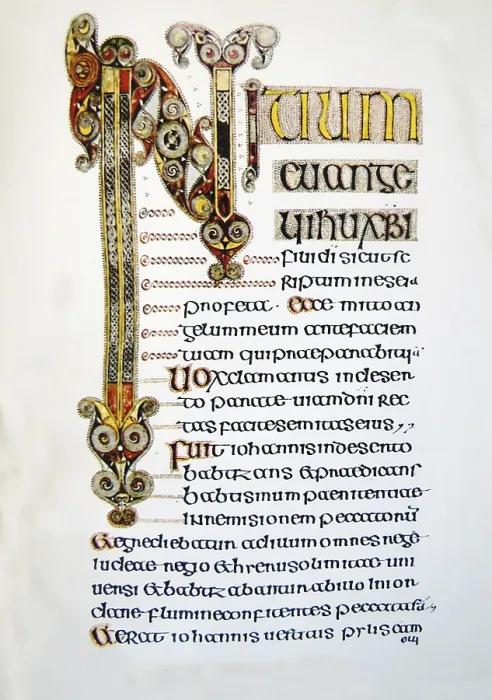 INITIUM
euange
lii ihu xpi
fili di sicut sc
riptum in esei a
profeta · Ecce mitto an
gelum meum ante faciem
tuam qui praeparabit ui
Uox clamantis in deser
to parate uiam dni rec
tas facite semitas eius ,,
Fuit iohannis in deserto
babtizans & praedicans
babtismum paenitentiae
in remisionem peccatorū
& egrediebatur ad illum omnes
iudeae regio & hierusolimitae uni
uersi & babtizabantur ab illo in ior
dane flumine confitentes peccata sua ,
& erat iohannis uestitus pilis cam
eli